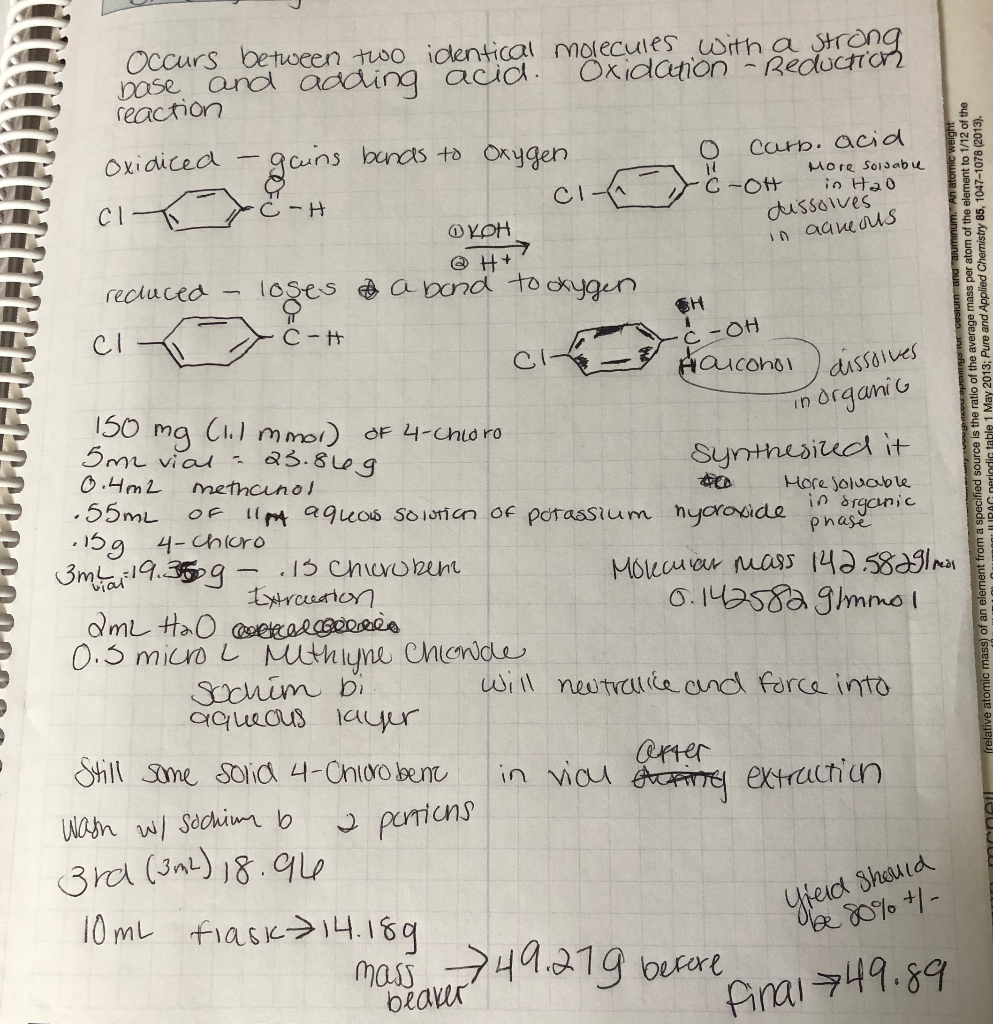 Occurs between two identical molecules with a strong
base and adding acid. Oxidation - Reduction
reaction
oxidiced - gains bonds to oxygen
Cl
O
C - H
① KOH
② H+
Cl
O
C - OH
carb. acid
More soluable
in H2O
dissolves
in aqueous
reduced - loses a bond to oxygen
Cl
O
C - H
Cl
H
C - OH
H alcohol
dissolves
in organic
150 mg (1.1 mmol) of 4-chloro
5mL vial = 23.866g
0.4mL methanol
.55mL of 11M aqueous solution of potassium hydroxide
.15g 4-chloro
Synthesized it
More soluable
in organic
phase
3mL vial = 19.
g - .15 chlorobenz
Extraction
Molecular mass 142.582g/mol
0.142582 g/mmol
2mL H2O
0.5 micro L Methlyne Chloride
Sodium bi
aqueous layer
will neutralize and force into
Still some solid 4-Chlorobenz in vial after extraction
wash w/ sodium b 2 portions
3rd (3mL) 18.96
10 mL flask → 14.18g
yield should
be 80% +/-
mass
beaker
→ 49.279 before
final → 49.89
(relative atomic mass) of an element from a specified source is the ratio of the average mass per atom of the element to 1/12 of the
IUPAC periodic table 1 May 2013; Pure and Applied Chemistry 85, 1047-1078 (2013).
An atomic weight